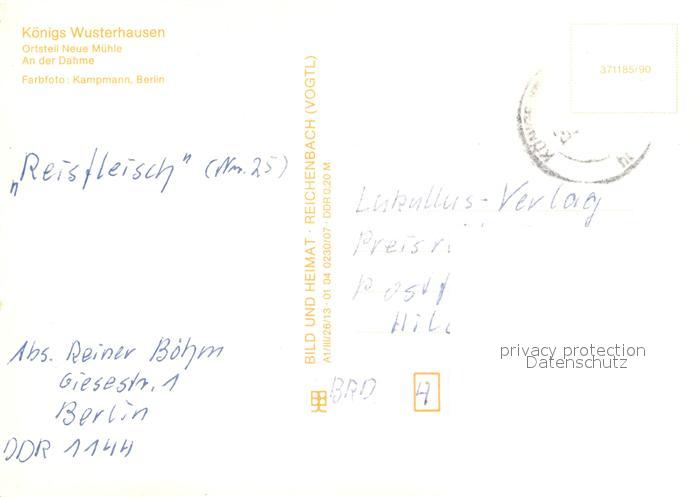 Königs Wusterhausen
Ortsteil Neue Mühle
An der Dahme
Farbfoto: Kampmann, Berlin
„Reisfleisch" (Nr. 25)
Abs. Reiner Böhm
Giesestr. 1
Berlin
DDR 1144
BILD UND HEIMAT · REICHENBACH (VOGTL)
A1/III/26/13 · 01 04 0230/07 · DDR 0,20 M
371185/90
KÖNIGS
14
Lukullus-Verlag
BRD
privacy protection
Datenschutz